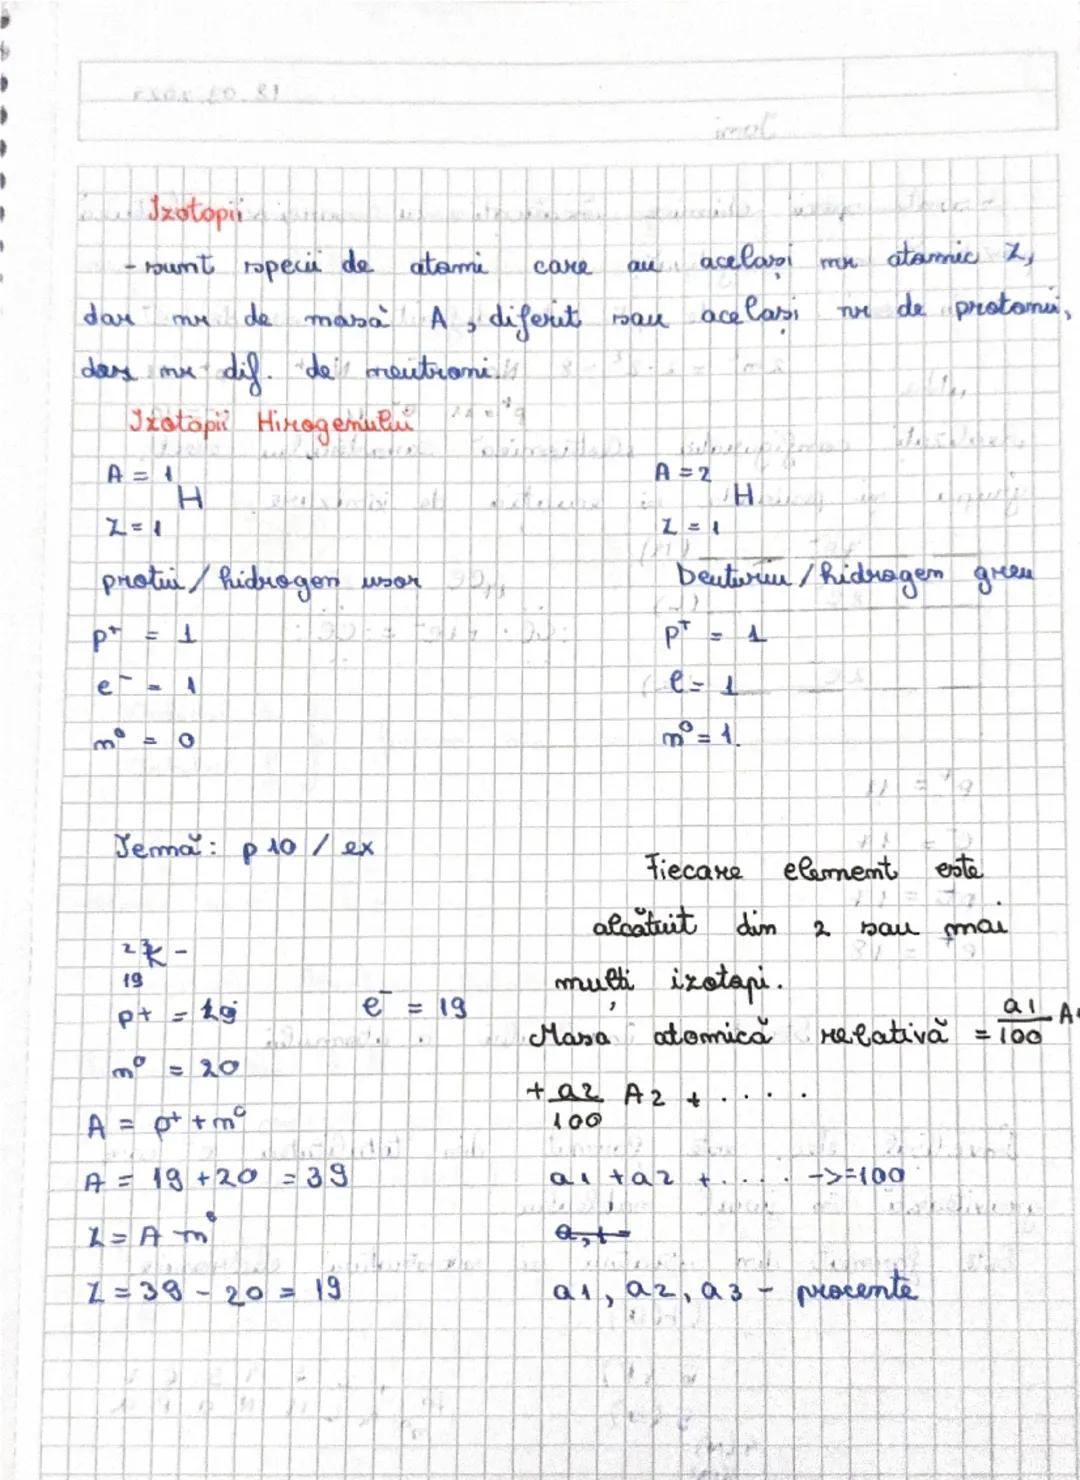 Izotopii
- sunt specii de atomi care au același nr atomic Z,
dar nr de masă A, diferit sau același nr de protoni,
dar nr dif. de neutroni.
Izotopii Hirogenului
A = 1
H
Z = 1
protiu / hidrogen usor
p+ = 1
e- = 1
n⁰ = 0
A = 2
H
Z = 1
Deuteriu / hidrogen greu
p+ = 1
e = 1
n⁰ = 1.
Temă: p 10 / ex
K -
19
p+ = 19 e- = 19
n⁰ = 20
A = p+ + n⁰
A = 19 + 20 = 39
Z = A n⁰
Z = 39 - 20 = 19
Fiecare element este
alcătuit din 2 sau mai
mulți izotopi.
Masa atomică relativă = a1/100 A
+ a2/100 A2 + . . . .
a1 + a2 + . . . . ->=100
a1, a2, a3 - procente